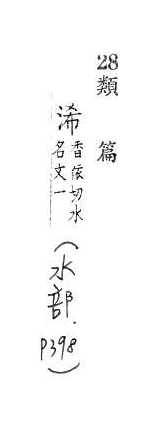 28類篇
浠香依切水名文一(水部.P398)